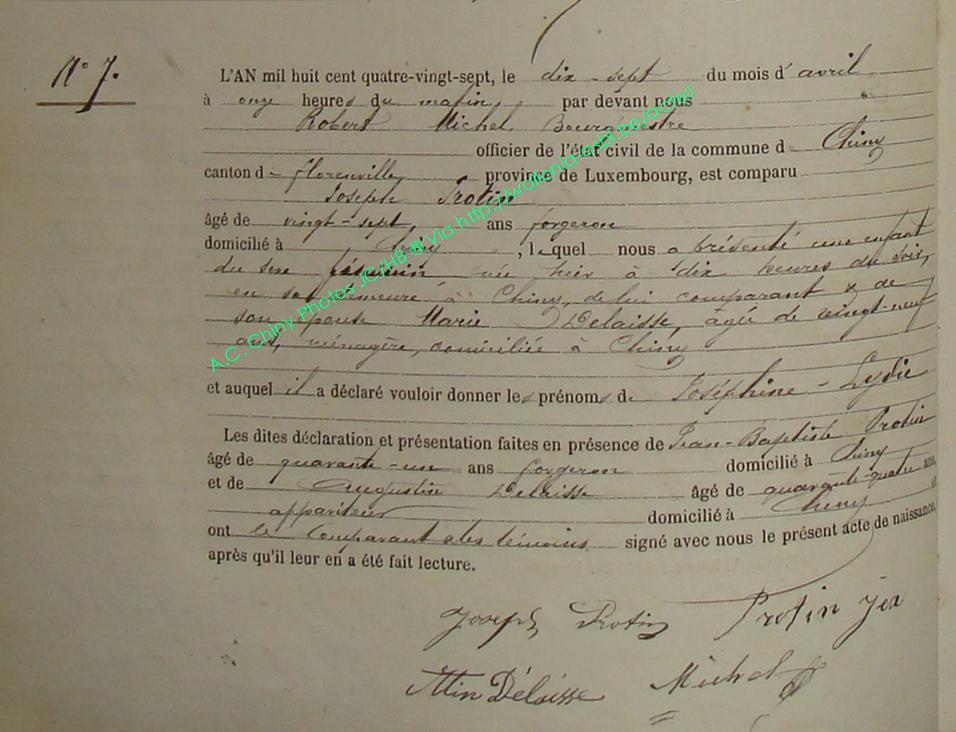 N° 7.
L'AN mil huit cent quatre-vingt-sept, le dix-sept du mois d'avril
à onze heures du matin, par devant nous
Robert Michel, Bourgmestre
officier de l'état civil de la commune de Chiny
canton de Florenville, province de Luxembourg, est comparu
Joseph Protin
âgé de vingt-sept, ans forgeron
domicilié à Chiny, lequel nous a présenté une enfant
du sexe féminin née hier à dix heures du soir,
en sa demeure à Chiny, de lui comparant & de
son épouse Marie Delaisse, agée de vingt-neuf
ans, ménagère, domiciliée à Chiny
et auquel il a déclaré vouloir donner les prénoms de Joséphine-Lydie
Les dites déclaration et présentation faites en présence de Jean-Baptiste Protin
âgé de quarante-un ans forgeron domicilié à Chiny
et de Augustin Delaisse âgé de quarante-quatre ans,
appariteur domicilié à Chiny et
ont le comparant & les témoins signé avec nous le présent acte de naissance,
après qu'il leur en a été fait lecture.
Joseph Protin Protin
Délaisse Michel
A.C. Chiny Photos JCJHB @ Via http://wallonia-asbl.be/actons